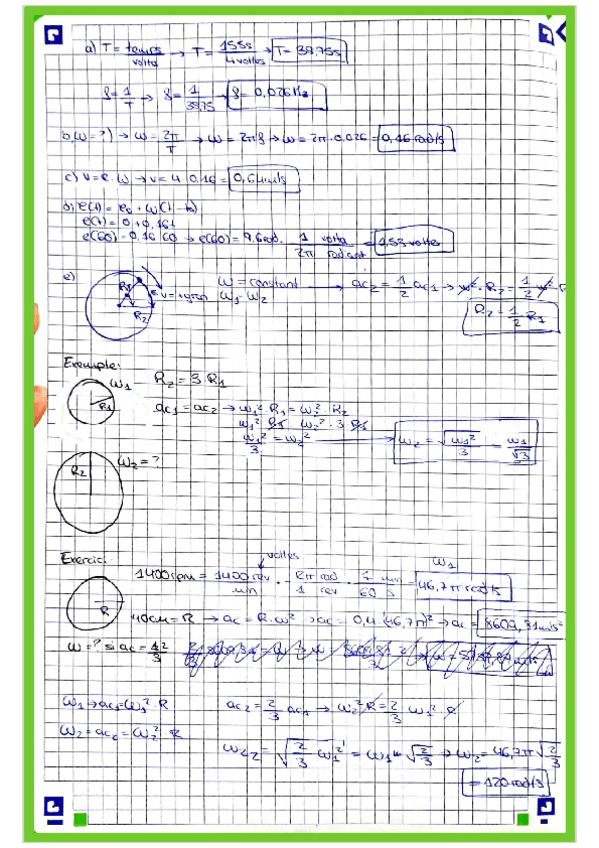 a) T = temps/volta → T = 155s/4voltes → T = 38,75s
f = 1/T → f = 1/38,75 → f = 0,026Hz
b) ω = ?) → ω = 2π/T → ω = 2πf → ω = 2π · 0,026 = 0,16 rad/s
c) v = R · ω → v = 4 · 0,16 = 0,64m/s
d) φ(t) = φ0 + ω(t - t0)
φ(t) = 0 + 0,16t
φ(60) = 0,16 · 60 → φ(60) = 9,6rad · 1 volta/2π radiant = 1,53 voltes
e) R1 R2 ω = constant → ac2 = 1/2 ac1 → ω² · R2 = 1/2 ω²
ω1 ω2 R2 = 1/2 R1
Exemple:
ω1 R2 = 3 · R1
R1 ac1 = ac2 → ω1² · R1 = ω2² · R2
ω1² R1 ω2² · 3 R1
ω1²/3 = ω2² → ω2 = √ω1²/3 = ω1/√3
R2 ω2 = ?
Exercici: voltes ω1
1400rpm = 1400 rev/min · 2π rad/1 rev · 1 min/60 s = 46,7π rad/s
R 40cm = R → ac = R · ω² → ac = 0,4 · (46,7π)² → ac = 8609,31m/s²
ω = ? si ac =
ω1 → ac1 = ω1² · R ac2 = 2/3 ac1 → ω2² R = 2/3 ω1² R
ω2 = ac2 = ω2² · R
= √2/3 ω1² = ω1 · √2/3 → ω2 = 46,7π √2/3
= 120 rad/s